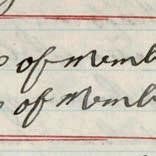 of Memb
of Memb